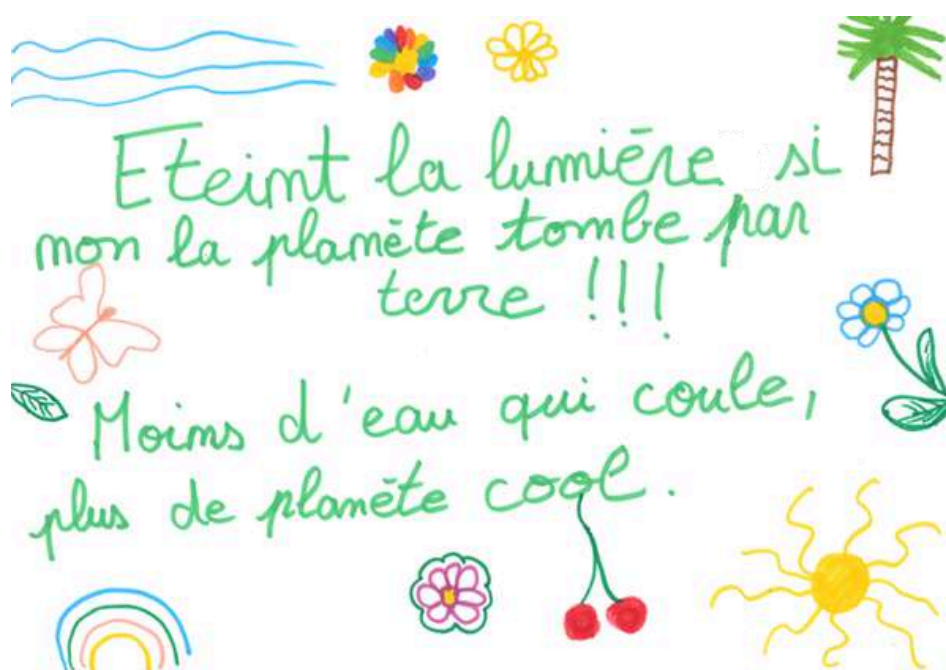 Eteint la lumière si
non la planète tombe par
terre !!!
Moins d'eau qui coule,
plus de planète cool.